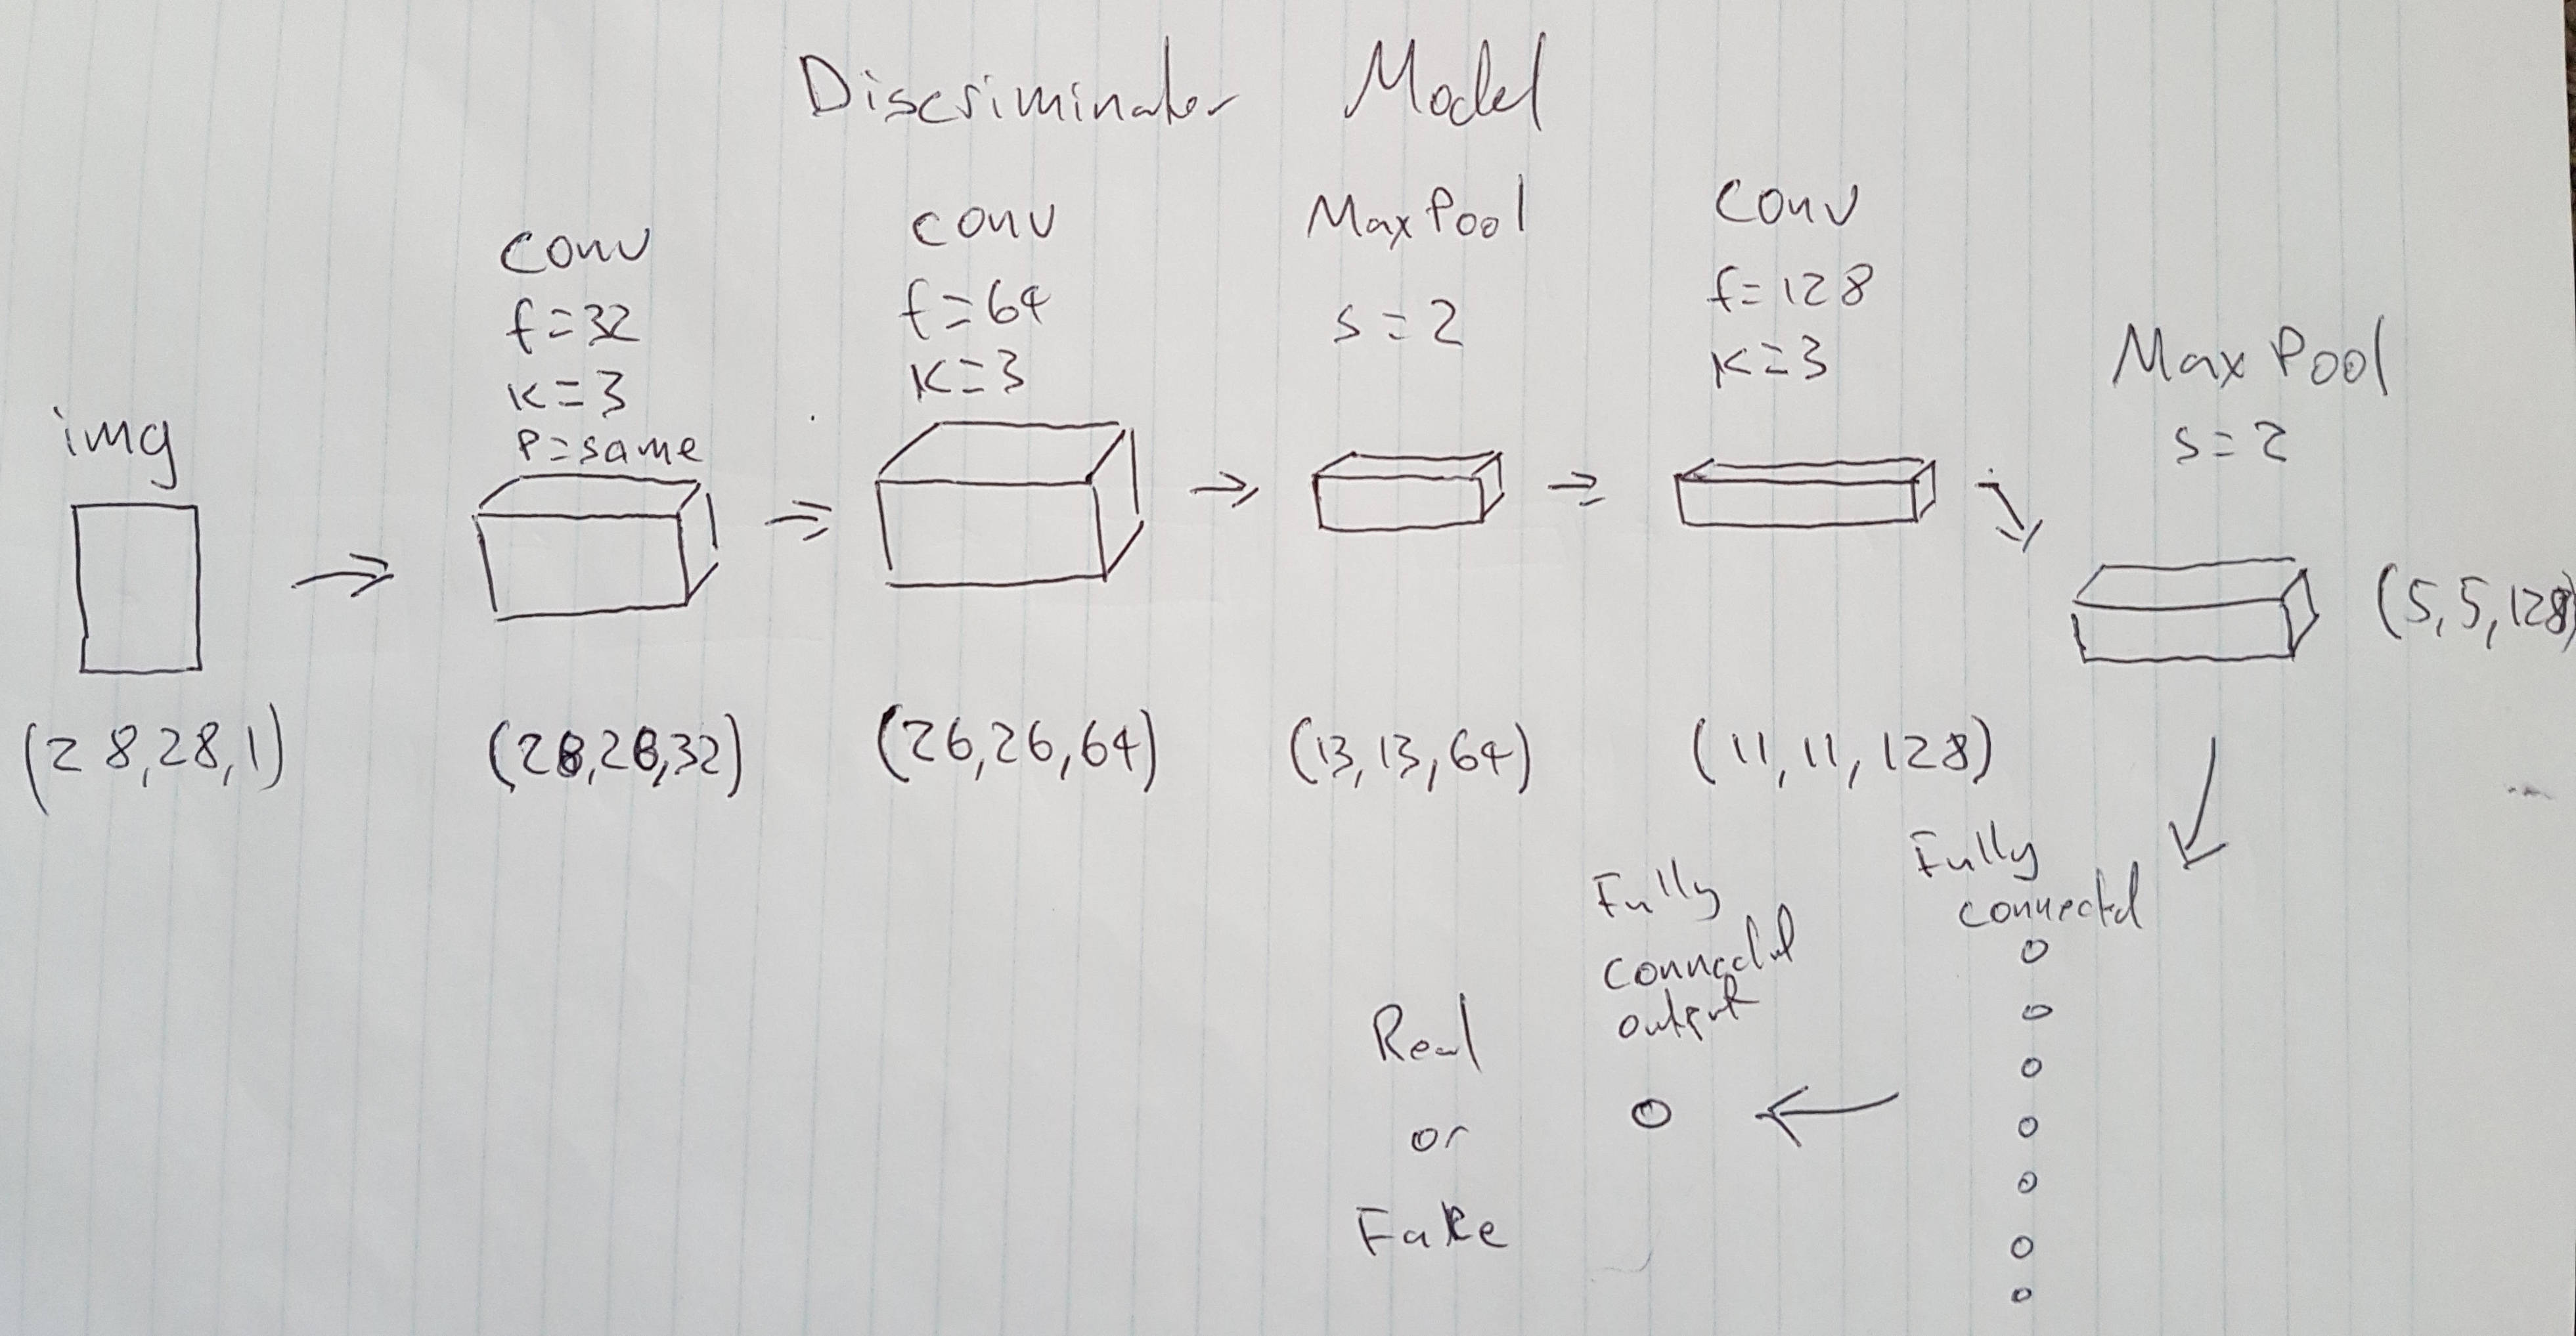 Discriminator Model
img
(28,28,1)
conv
f=32
k=3
P=same
(28,28,32)
conv
f=64
k=3
(26,26,64)
MaxPool
s=2
(13,13,64)
conv
f=128
k=3
(11,11,128)
MaxPool
s=2
(5,5,128)
Fully
connected
Fully
connected
output
Real
or
Fake